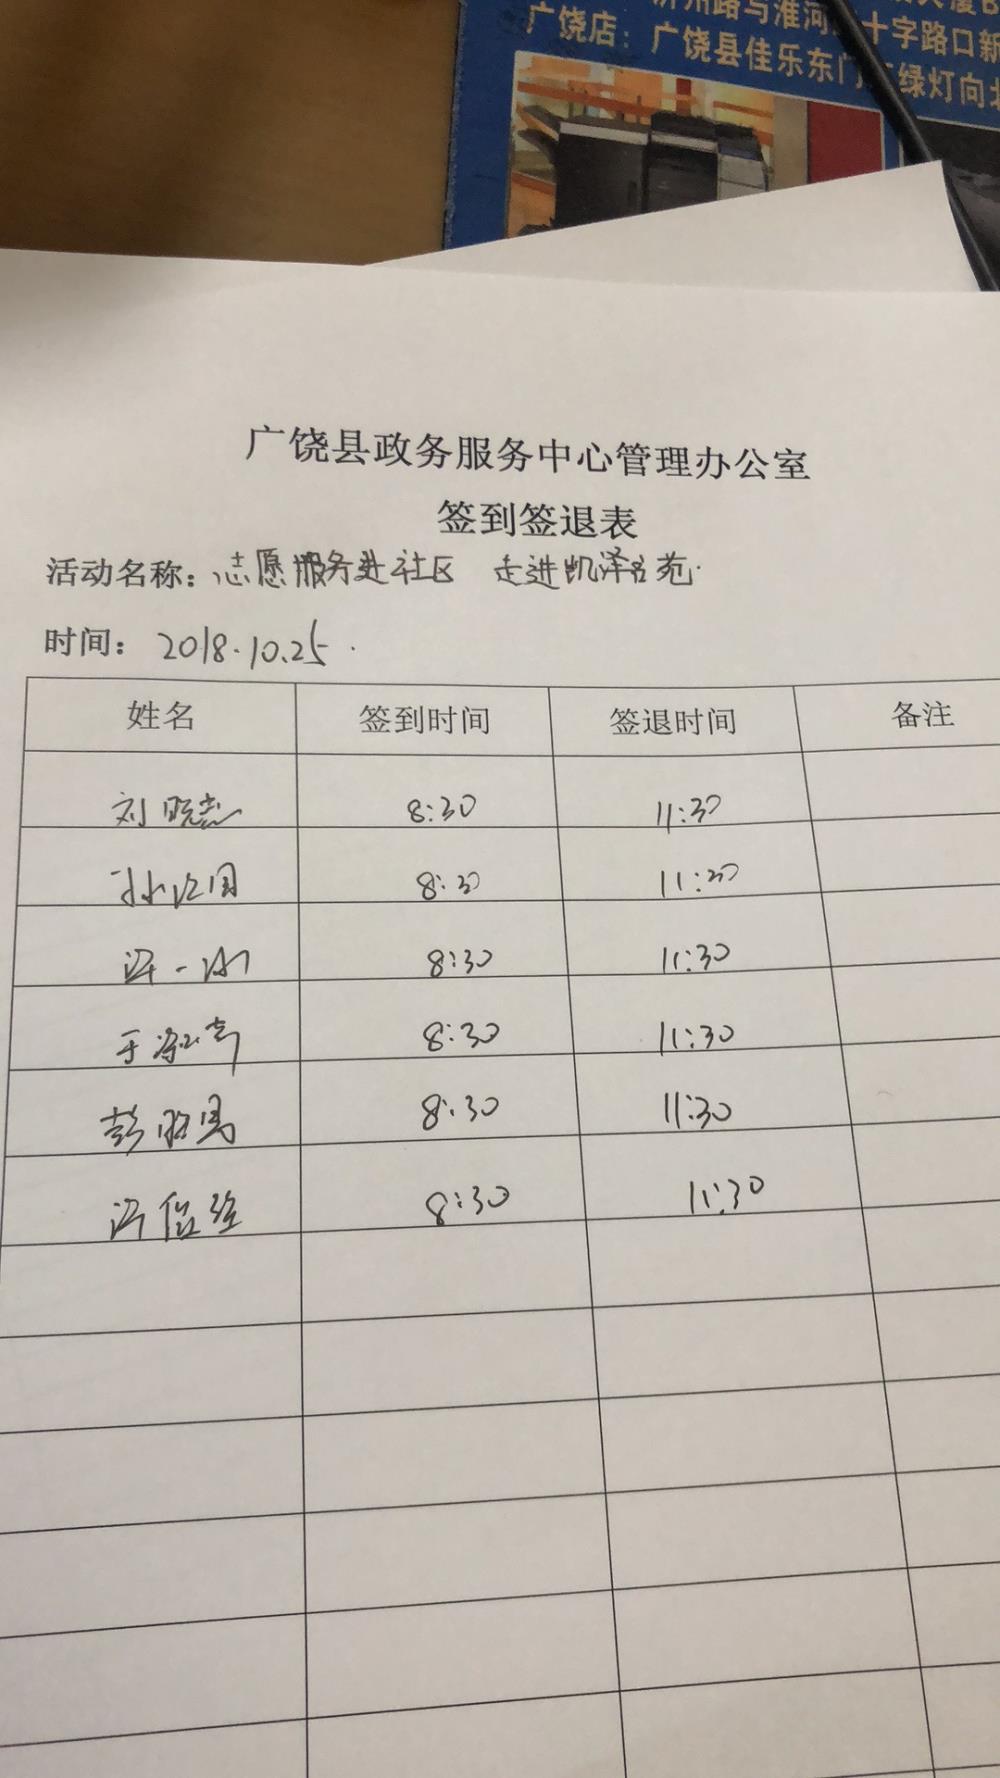 广饶店：广饶县佳乐东门
绿灯向
广饶县政务服务中心管理办公室
签到签退表
活动名称：志愿服务进社区 走进凯泽名苑.
时间：2018.10.25.
姓名 签到时间 签退时间 备注
刘晓 8:30 11:30
孙 8:30 11:30
一 8:30 11:30
于 8:30 11:30
彭 8:30 11:30
冯 8:30 11:30